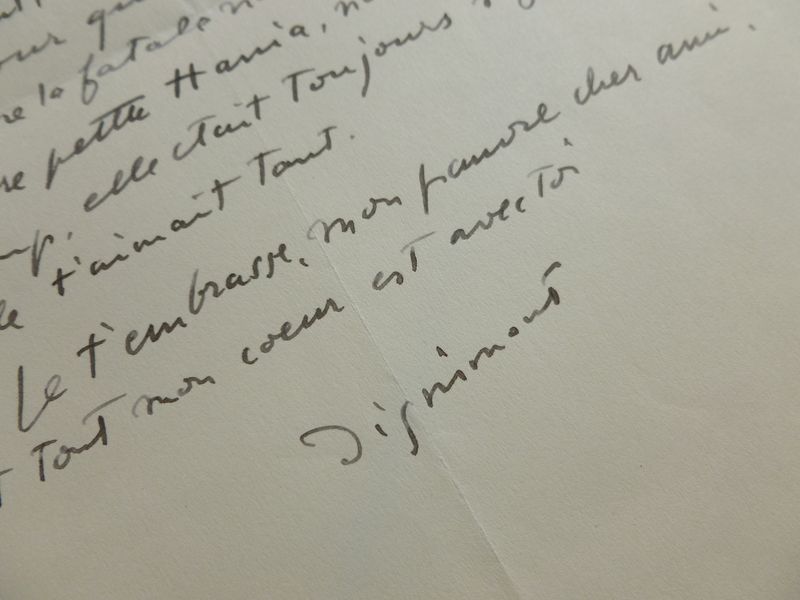 la fatale
petite Hania,
elle était toujours
t'aimait tant.
Je t'embrasse, mon pauvre cher ami.
tout mon coeur est avec toi
Dignimont